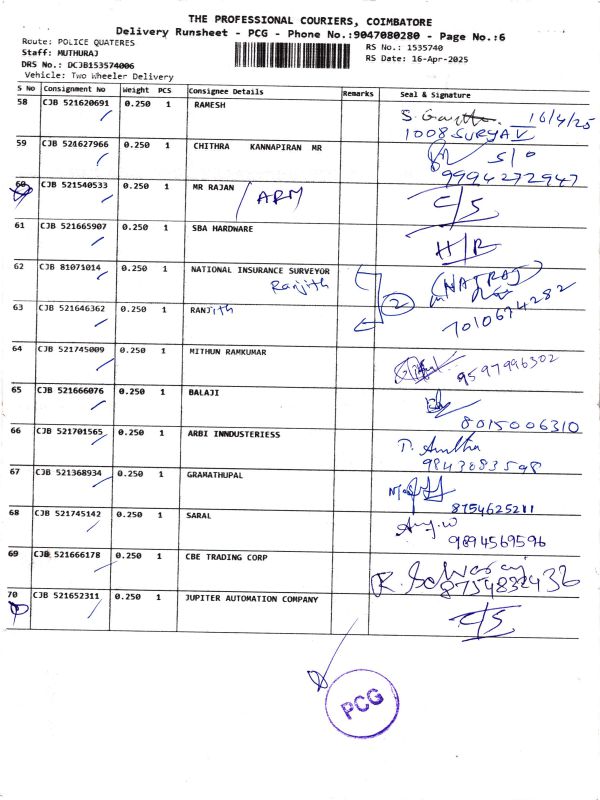 THE PROFESSIONAL COURIERS, COIMBATORE
Delivery Runsheet - PCG - Phone No.:9047080280 - Page No.:6
Route: POLICE QUATERES
Staff: MUTHURAJ
DRS No.: DCJB153574006
Vehicle: Two Wheeler Delivery
RS No.: 1535740
RS Date: 16-Apr-2025
S No Consignment No Weight PCS Consignee Details Remarks Seal & Signature
58 CJB 521620691 0.250 1 RAMESH 16/4/25
1008 SURYA V
59 CJB 524627966 0.250 1 CHITHRA KANNAPIRAN MR S/O
9994272947
60 CJB 521540533 0.250 1 MR RAJAN ARM C/S
61 CJB 521665907 0.250 1 SBA HARDWARE H/R
62 CJB 81071014 0.250 1 NATIONAL INSURANCE SURVEYOR (NATRAJ)
Ranjith 2
63 CJB 521646362 0.250 1 RANJith 7010674282
64 CJB 521745009 0.250 1 MITHUN RAMKUMAR 9597996302
65 CJB 521666076 0.250 1 BALAJI
8015006310
66 CJB 521701565 0.250 1 ARBI INNDUSTERIESS
9843083598
67 CJB 521368934 0.250 1 GRAMATHUPAL
8754625211
68 CJB 521745142 0.250 1 SARAL
9894569596
69 CJB 521666178 0.250 1 CBE TRADING CORP R. Selvaraj
8754832436
70 CJB 521652311 0.250 1 JUPITER AUTOMATION COMPANY C/S
PCG